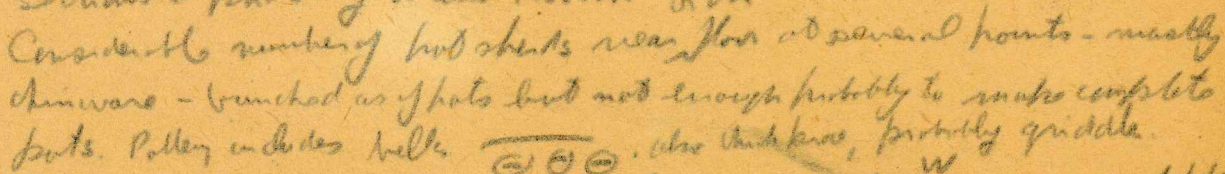 Considerable number of potsherds near floor at several points - mostly
thinware - bunched as if pots but not enough probably to make complete
pots. Pottery includes also thick piece, probably griddle.
W